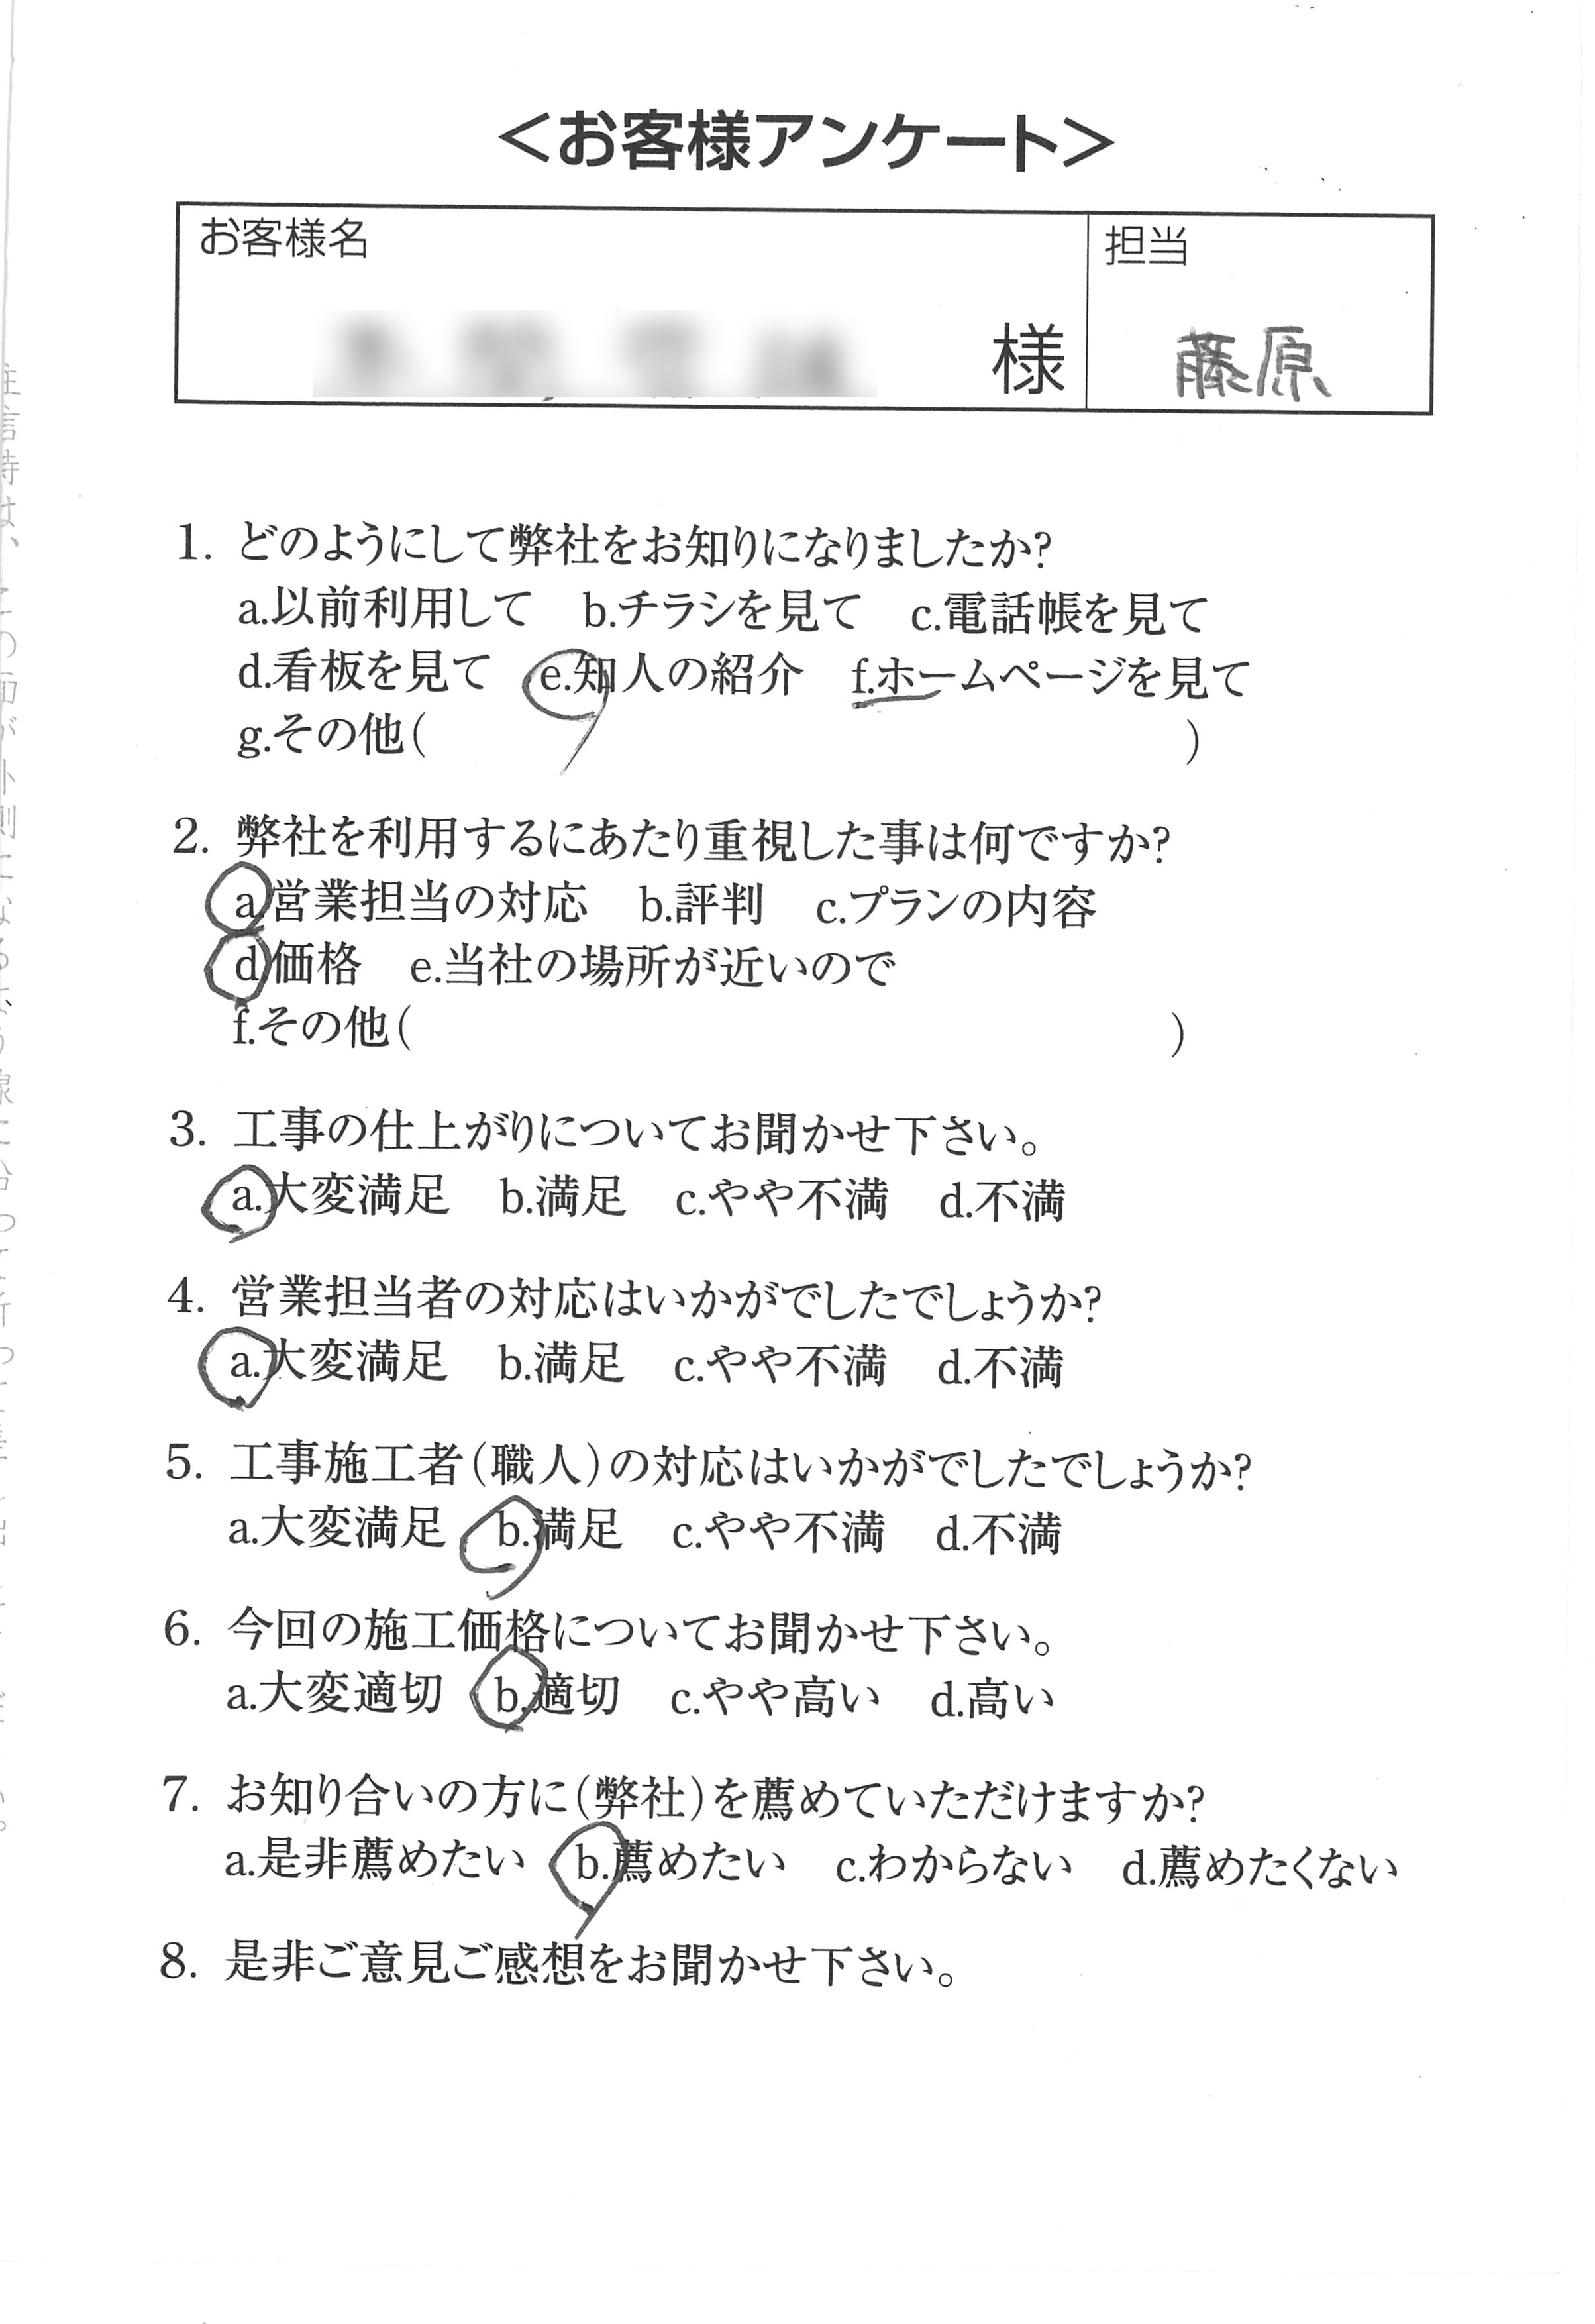 ＜お客様アンケート＞
お客様名
様
担当
藤原
1. どのようにして弊社をお知りになりましたか?
a.以前利用して b.チラシを見て c.電話帳を見て
d.看板を見て e.知人の紹介 f.ホームページを見て
g.その他( )
2. 弊社を利用するにあたり重視した事は何ですか?
a.営業担当の対応 b.評判 c.プランの内容
d.価格 e.当社の場所が近いので
f.その他( )
3. 工事の仕上がりについてお聞かせ下さい。
a.大変満足 b.満足 c.やや不満 d.不満
4. 営業担当者の対応はいかがでしたでしょうか?
a.大変満足 b.満足 c.やや不満 d.不満
5. 工事施工者(職人)の対応はいかがでしたでしょうか?
a.大変満足 b.満足 c.やや不満 d.不満
6. 今回の施工価格についてお聞かせ下さい。
a.大変適切 b.適切 c.やや高い d.高い
7. お知り合いの方に(弊社)を薦めていただけますか?
a.是非薦めたい b.薦めたい c.わからない d.薦めたくない
8. 是非ご意見ご感想をお聞かせ下さい。